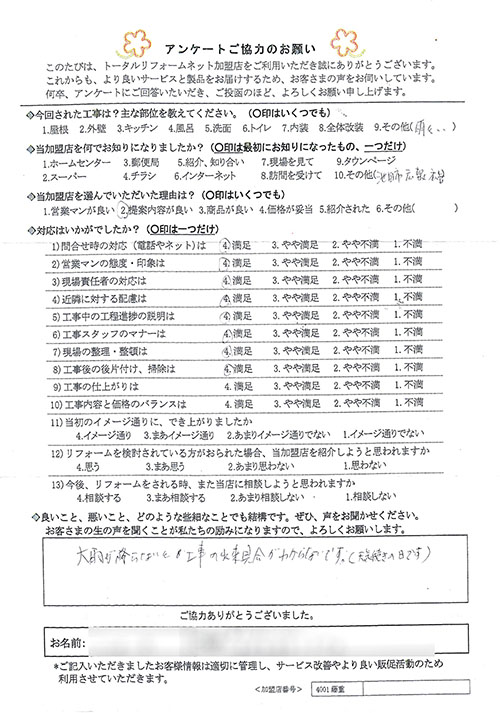 アンケートご協力のお願い
このたびは、トータルリフォームネット加盟店をご利用いただき誠にありがとうございます。
これからも、より良いサービスと製品をお届けするため、お客さまの声をお伺いしています。
何卒、アンケートにご回答いただき、ご投函のほど、よろしくお願い申し上げます。
◆今回された工事は?主な部位を教えてください。(〇印はいくつでも)
1.屋根 2.外壁 3.キッチン 4.風呂 5.洗面 6.トイレ 7.内装 8.全体改装 9.その他( )
◆当加盟店を何でお知りになりましたか?(〇印は最初にお知りになったもの、一つだけ)
1.ホームセンター 3.郵便局 5.紹介、知り合い 7.現場を見て 9.タウンページ
2.スーパー 4.チラシ 6.インターネット 8.訪問を受けて 10.その他(
◆当加盟店を選んでいただいた理由は?(〇印はいくつでも)
1.営業マンが良い 2.提案内容が良い 3.商品が良い 4.価格が妥当 5.紹介された 6.その他( )
◆対応はいかがでしたか?(〇印は一つだけ)
1)問合せ時の対応(電話やネット)は 4.満足 3.やや満足 2.やや不満 1.不満
2)営業マンの態度・印象は 4.満足 3.やや満足 2.やや不満 1.不満
3)現場責任者の対応は 4.満足 3.やや満足 2.やや不満 1.不満
4)近隣に対する配慮は 4.満足 3.やや満足 2.やや不満 1.不満
5)工事中の工程進捗の説明は 4.満足 3.やや満足 2.やや不満 1.不満
6)工事スタッフのマナーは 4.満足 3.やや満足 2.やや不満 1.不満
7)現場の整理・整頓は 4.満足 3.やや満足 2.やや不満 1.不満
8)工事後の後片付け、掃除は 4.満足 3.やや満足 2.やや不満 1.不満
9)工事の仕上がりは 4.満足 3.やや満足 2.やや不満 1.不満
10)工事内容と価格のバランスは 4.満足 3.やや満足 2.やや不満 1.不満
11)当初のイメージ通りに、でき上がりましたか
4.イメージ通り 3.まあイメージ通り 2.あまりイメージ通りでない 1.イメージ通りでない
12)リフォームを検討されている方がおられた場合、当加盟店を紹介しようと思われますか
4.思う 3.まあ思う 2.あまり思わない 1.思わない
13)今後、リフォームをされる時、また当店に相談しようと思われますか
4.相談する 3.まあ相談する 2.あまり相談しない 1.相談しない
◆良いこと、悪いこと、どのような些細なことでも結構です。ぜひ、声をお聞かせください。
お客さまの声を聞くことが私たちの励みになりますので、よろしくお願いします。
大雨が降らないと 工事の出来具合がわからないです。(天気続きの日です)
ご協力ありがとうございました。
お名前:
*ご記入いただきましたお客様情報は適切に管理し、サービス改善やより良い販促活動のため
利用させていただきます。
<加盟店番号> 4001 藤重